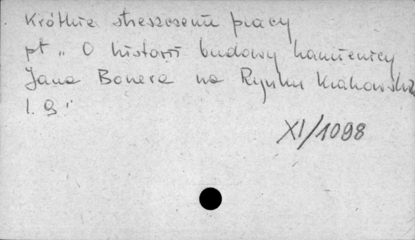 Krótkie streszczenie pracy
pt „O historii budowy kamienicy
Jana Bonera na Rynku Krakowskim
l. 9"
XI/1098